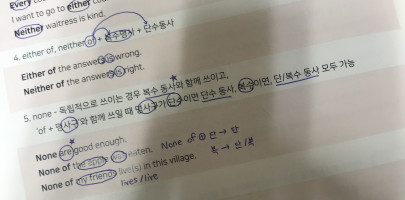 Every
I want to go to either
Neither waitress is kind.
4. either of, neither of + 복수명사 + 단수동사
Either of the answers is wrong.
Neither of the answers is right.
5. none - 독립적으로 쓰이는 경우 복수 동사와 함께 쓰이고,
'of + 명사구'와 함께 쓰일 때 명사구가 단수이면 단수 동사, 복수이면, 단/복수 동사 모두 가능
None are good enough.
None of the apple was eaten. None of ⊕ 단 → 단
None of my friends live(s) in this village. 복 → 단/복
lives/live